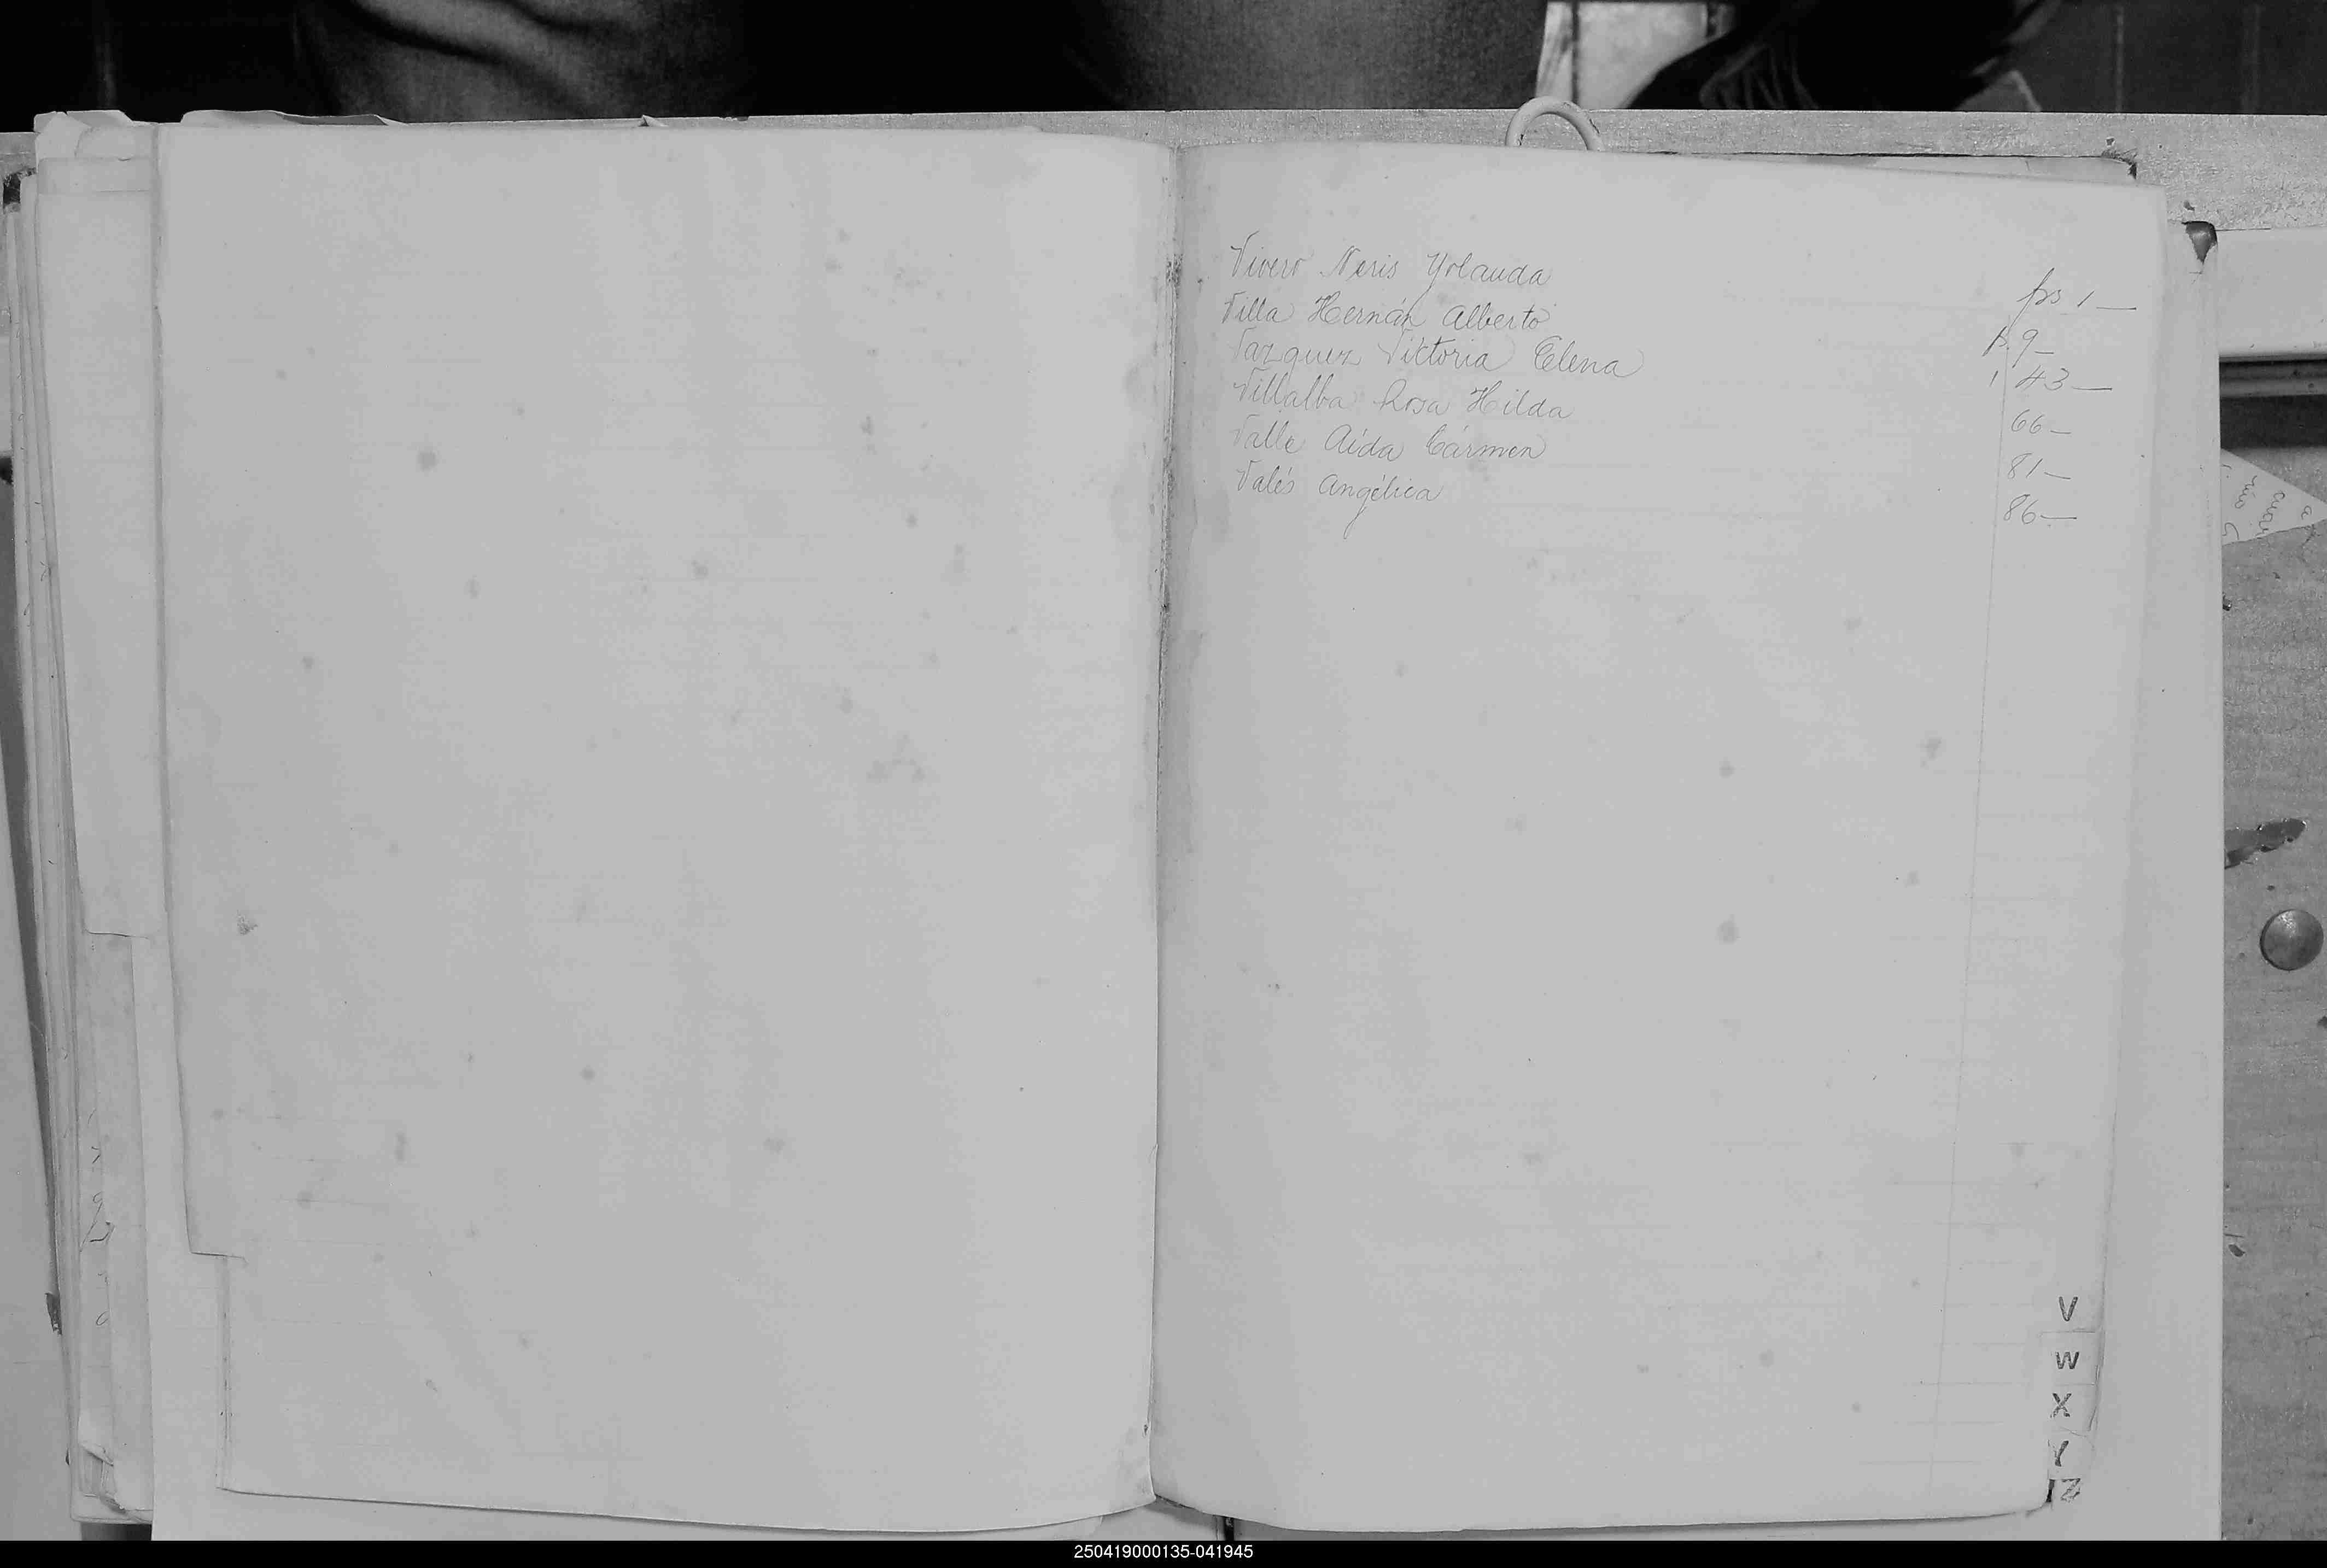 Vivero Neris Yolanda fs 1—
Villa Hernán Alberto f. 9—
Vazquez Viktoria Elena 43—
Villalba Rosa Hilda 66—
Valle Aída Cármen 81—
Valés Angélica 86—
V
W
X
Y
Z
250419000135-041945